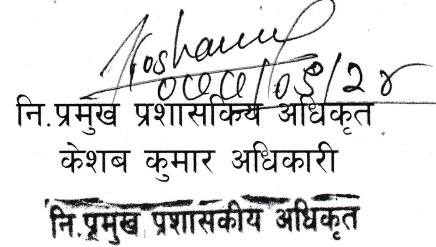 नि.प्रमुख प्रशासकिय अधिकृत
केशब कुमार अधिकारी
नि.प्रमुख प्रशासकीय अधिकृत